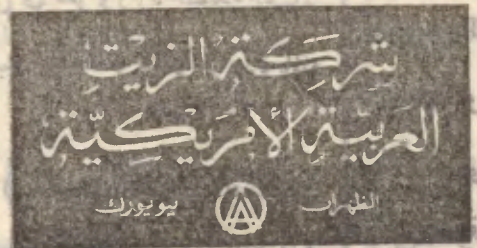 شركة الزيت
العربية الأمريكية
الظهران نيويورك